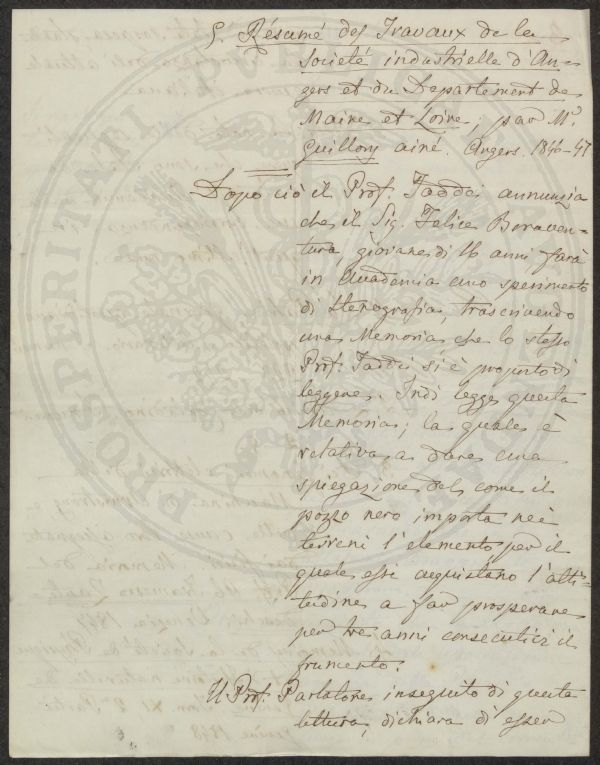 5. Résumé des Travaux de la
Societé industrielle d'An-
gers et du Departement de
Maine et Loire; par Mr.
Guillory ainé. Angers. 1846-47
Dopo ciò il Prof. Taddei annunzia
che il Sig. Felice Bonaven-
tura, giovane di 16 anni, farà
in Accademia uno sperimento
di Stenografia, trascrivendo
una Memoria che lo stesso
Prof. Taddei si è proposto di
leggere. Indi legge questa
Memoria; la quale è
relativa a dare una
spiegazione del come il
pozzo nero importa nei
terreni l'elemento per il
quale essi acquistano l'atti-
tudine a far prosperare
per tre anni consecutivi il
frumento.
Il Prof. Parlatore inseguito di questa
lettura, dichiara di esser
PROSPERITATI PUBLICAE